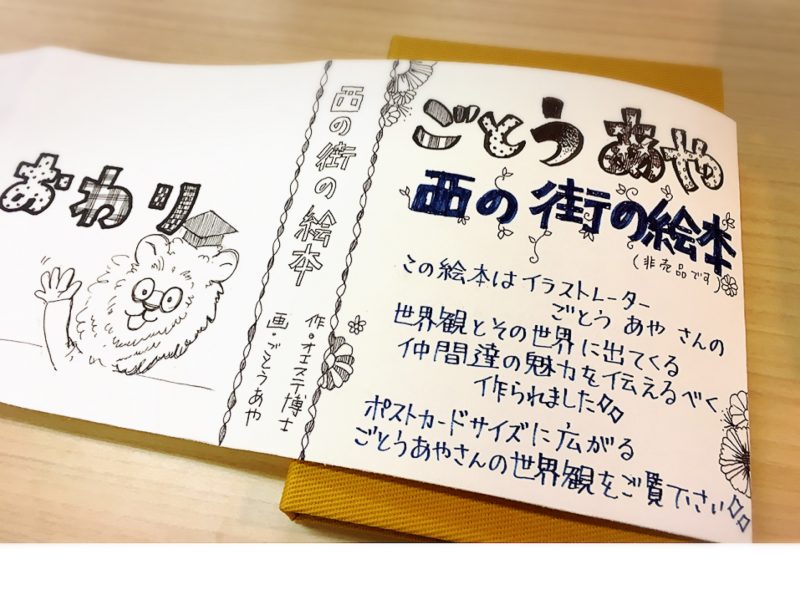 おわり
西の街の絵本
作・オエステ博士
画・ごとうあや
ごとう あや
西の街の絵本
(非売品です)
この絵本はイラストレーター
ごとう あや さんの
世界観とその世界に出てくる
仲間達の魅力を伝えるべく
作られました
ポストカードサイズに広がる
ごとうあやさんの世界観をご覧下さい